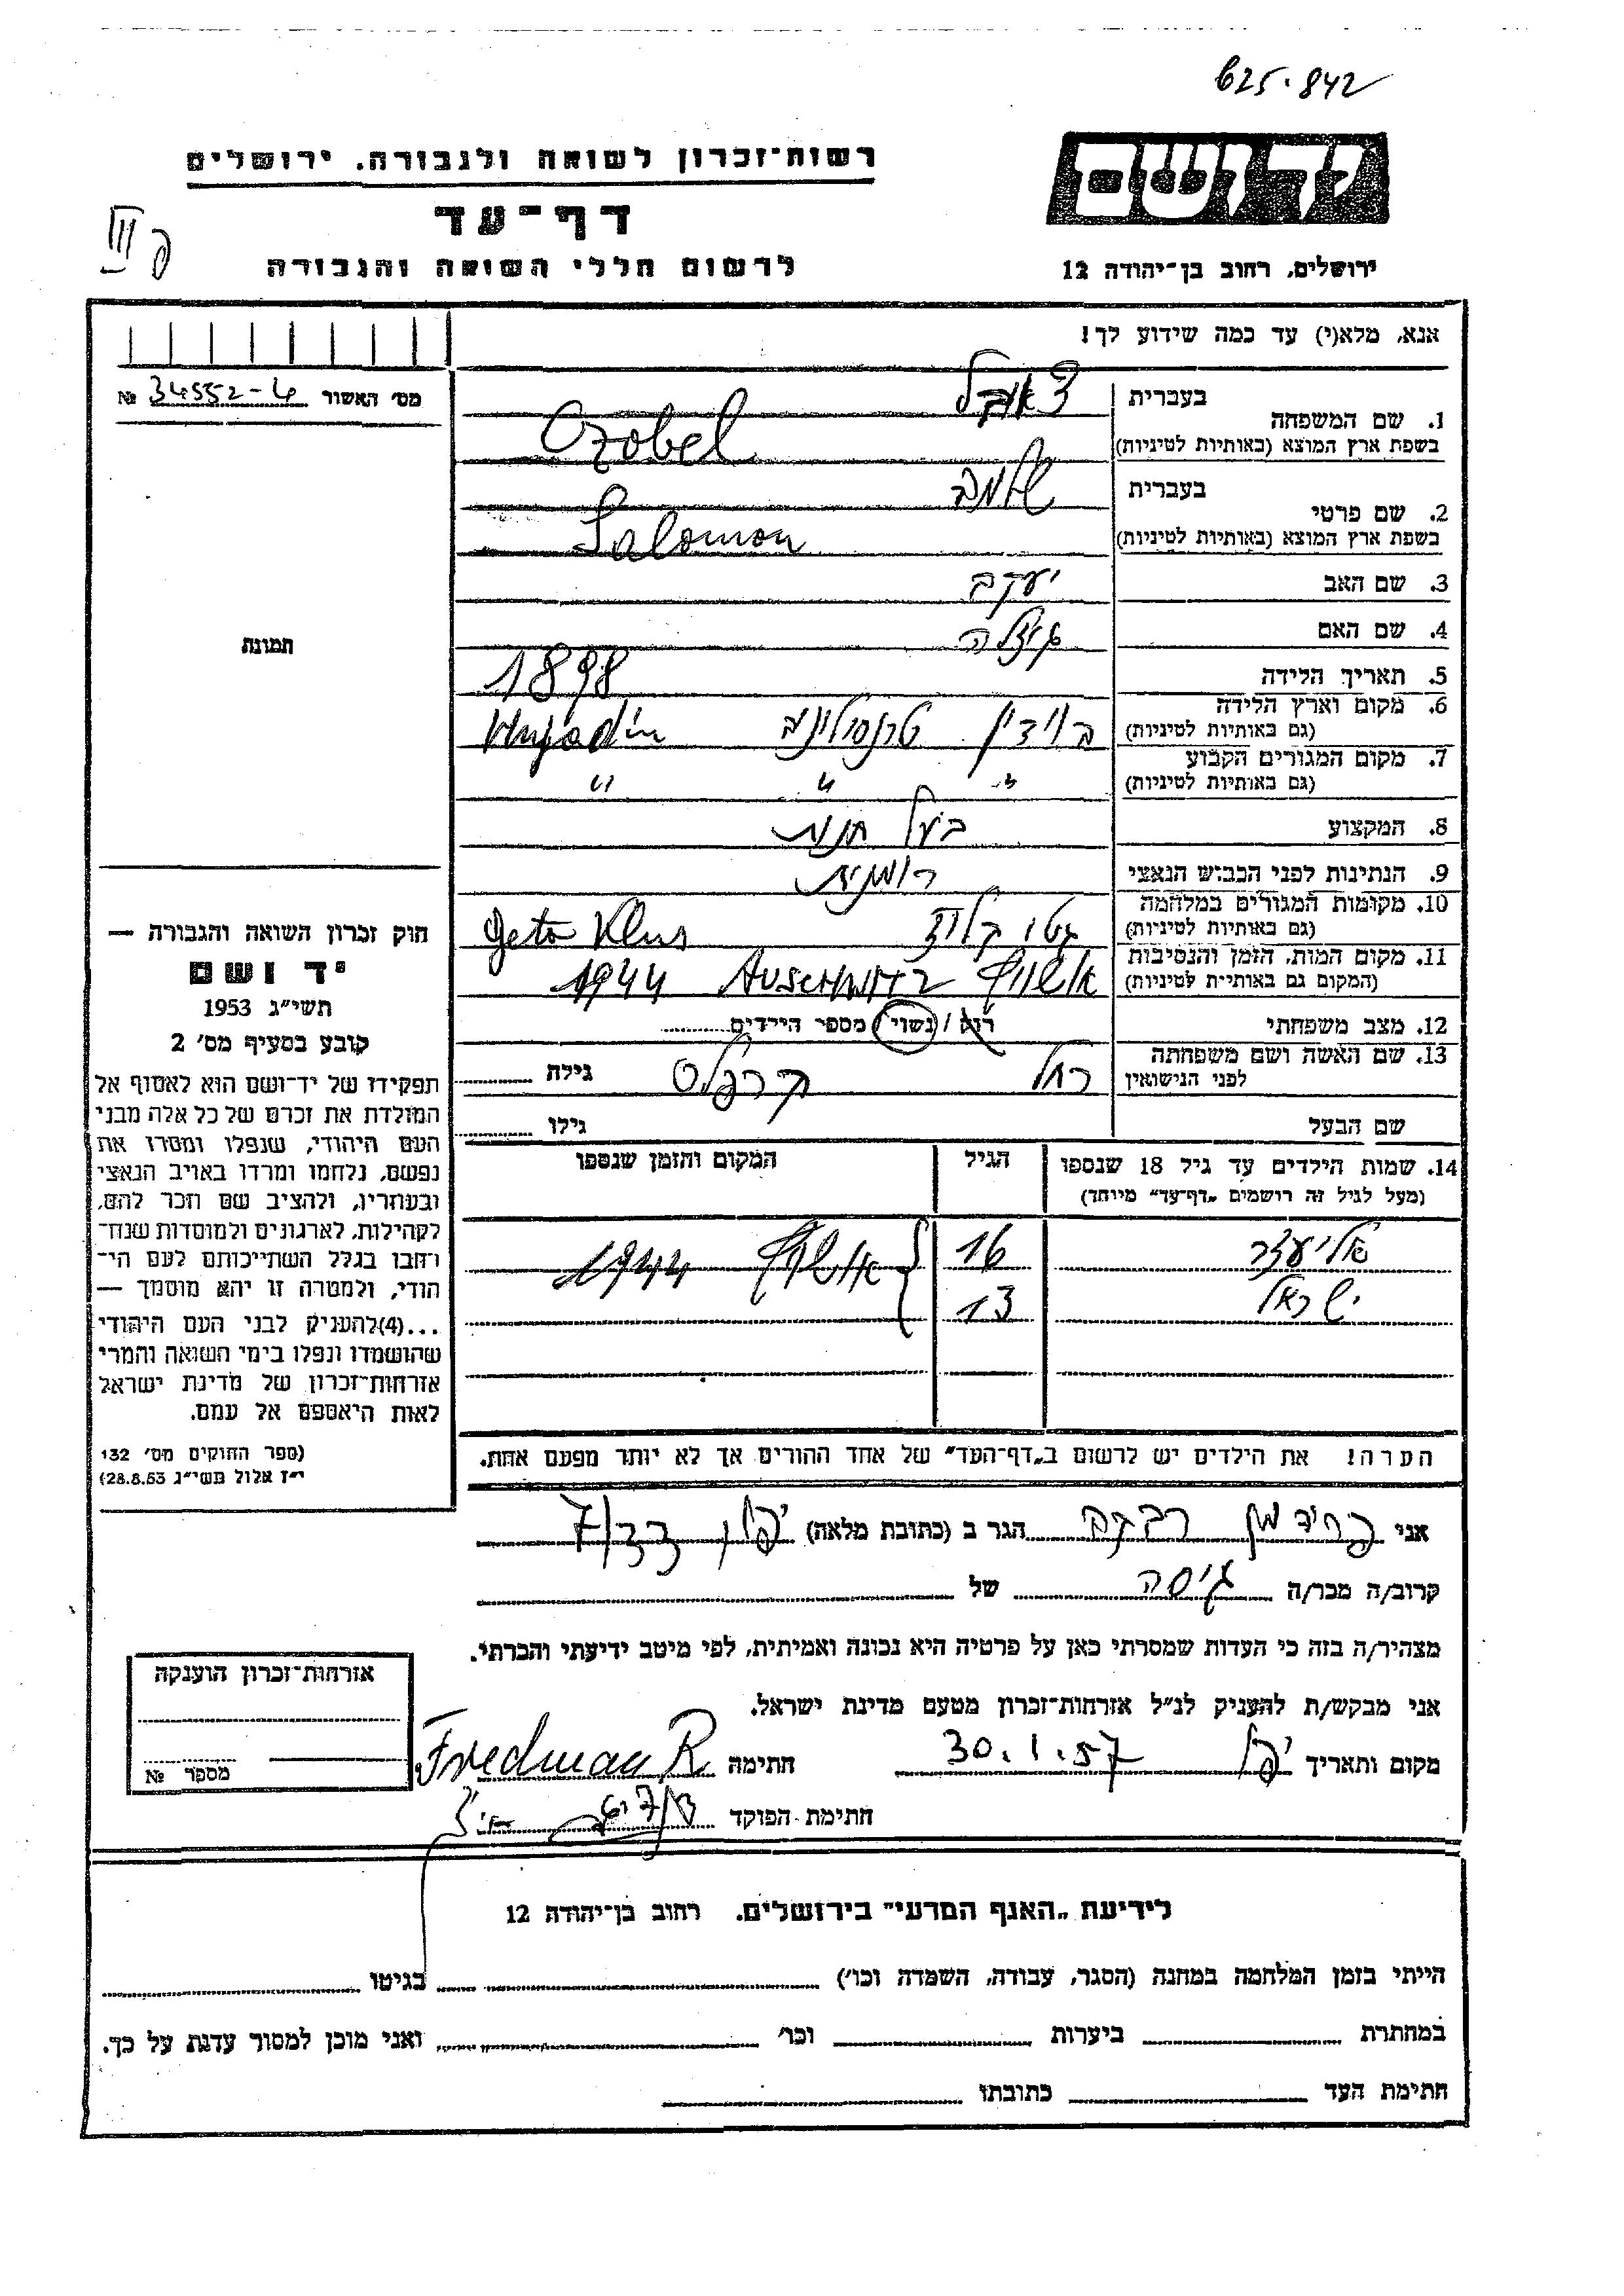 625.842
יד ושם
רשות־זכרון לשואה ולגבורה. ירושלים
דף־עד
לרשום חללי השואה והגבורה
ירושלים, רחוב בן־יהודה 12
אנא, מלא(י) עד כמה שידוע לך!
מס׳ האשור № 34552-4
1. שם המשפחה
בעברית
בשפת ארץ המוצא (באותיות לטיניות) Czobel
2. שם פרטי
בעברית שלמה
בשפת ארץ המוצא (באותיות לטיניות) Salomon
3. שם האב יעקב
4. שם האם גיזלה
5. תאריך הלידה 1898
6. מקום וארץ הלידה
(גם באותיות לטיניות) טרנסילוניה
7. מקום המגורים הקבוע
(גם באותיות לטיניות) " " "
8. המקצוע בעל חנות
9. הנתינות לפני הכבוש הנאצי רומנית
10. מקומות המגורים במלחמה
(גם באותיות לטיניות) גטו קלוז Geto Klus
11. מקום המות, הזמן והנסיבות
(המקום גם באותיות לטיניות) אושויץ Auschwitz 1944
12. מצב משפחתי רווק / נשוי / מספר הילדים
13. שם האשה ושם משפחתה
לפני הנישואין רחל גילה
שם הבעל גילו
14. שמות הילדים עד גיל 18 שנספו הגיל המקום והזמן שנספו
(מעל לגיל זה רושמים „דף־עד” מיוחד)
אליעזר 16 אושויץ 1944
ישראל 13
הערה! את הילדים יש לרשום ב„דף־העד” של אחד ההורים אך לא יותר מפעם אחת.
תמונת
חוק זכרון השואה והגבורה —
יד ושם
תשי״ג 1953
קובע בסעיף מס׳ 2
תפקידו של יד־ושם הוא לאסוף אל
המולדת את זכרם של כל אלה מבני
העם היהודי, שנפלו ומסרו את
נפשם, נלחמו ומרדו באויב הנאצי
ובעוזריו, ולהציב שם וזכר להם,
לקהילות, לארגונים ולמוסדות שנח־
רבו בגלל השתייכותם לעם הי־
הודי, ולמטרה זו יהא מוסמך —
...(4)להעניק לבני העם היהודי
שהושמדו ונפלו בימי השואה והמרי
אזרחות־זכרון של מדינת ישראל
לאות היאספם אל עמם.
(ספר החוקים מס׳ 132
י״ז אלול תשי״ג 28.8.53)
אני פרידמן רבקה הגר ב (כתובת מלאה) יפו
קרוב/ה מכר/ה גיסה של
מצהיר/ה בזה כי העדות שמסרתי כאן על פרטיה היא נכונה ואמיתית, לפי מיטב ידיעתי והכרתי.
אני מבקש/ת להעניק לנ״ל אזרחות־זכרון מטעם מדינת ישראל.
מקום ותאריך יפו 30.1.57 חתימה Fredman R.
חתימת הפוקד
אזרחות־זכרון הוענקה
מספר №
לידיעת „האגף המדעי” בירושלים. רחוב בן־יהודה 12
הייתי בזמן המלחמה במחנה (הסגר, עבודה, השמדה וכו׳) בגיטו
במחתרת ביערות וכו׳ ואני מוכן למסור עדות על כך.
חתימת העד כתובתו